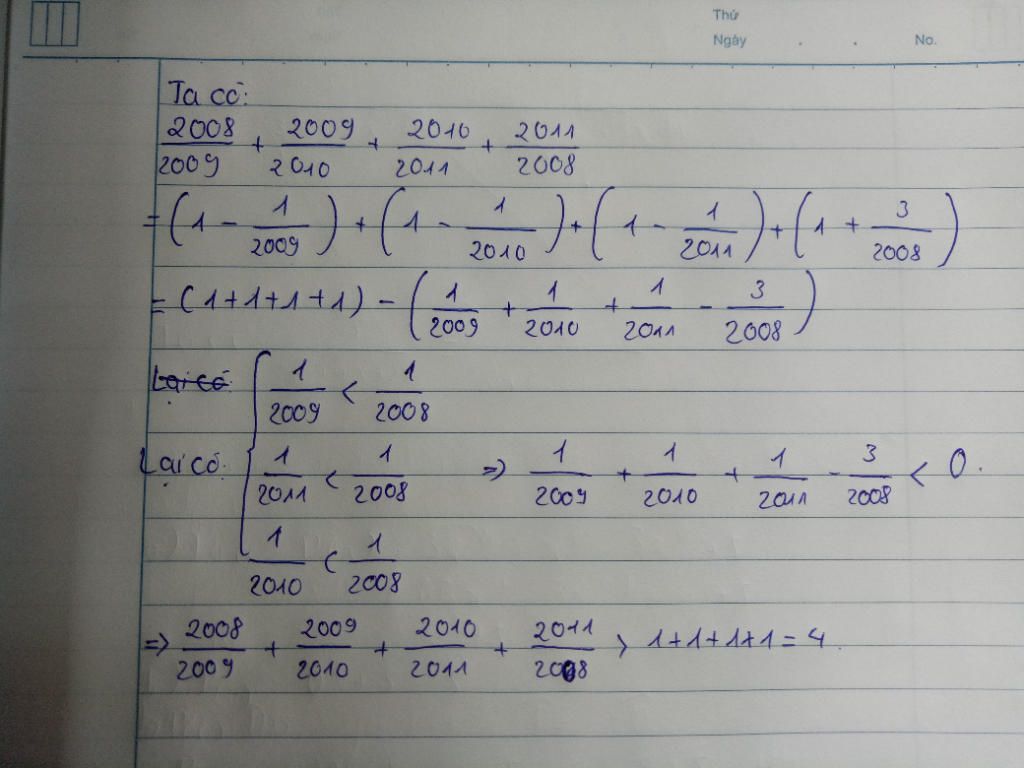 Thứ
Ngày . . No.
Ta có:
2008/2009 + 2009/2010 + 2010/2011 + 2011/2008
= (1 - 1/2009) + (1 - 1/2010) + (1 - 1/2011) + (1 + 3/2008)
= (1+1+1+1) - (1/2009 + 1/2010 + 1/2011 - 3/2008)
Lại có: { 1/2009 < 1/2008
Lại có: 1/2011 < 1/2008 => 1/2009 + 1/2010 + 1/2011 - 3/2008 < 0.
1/2010 < 1/2008
=> 2008/2009 + 2009/2010 + 2010/2011 + 2011/2008 > 1+1+1+1 = 4.